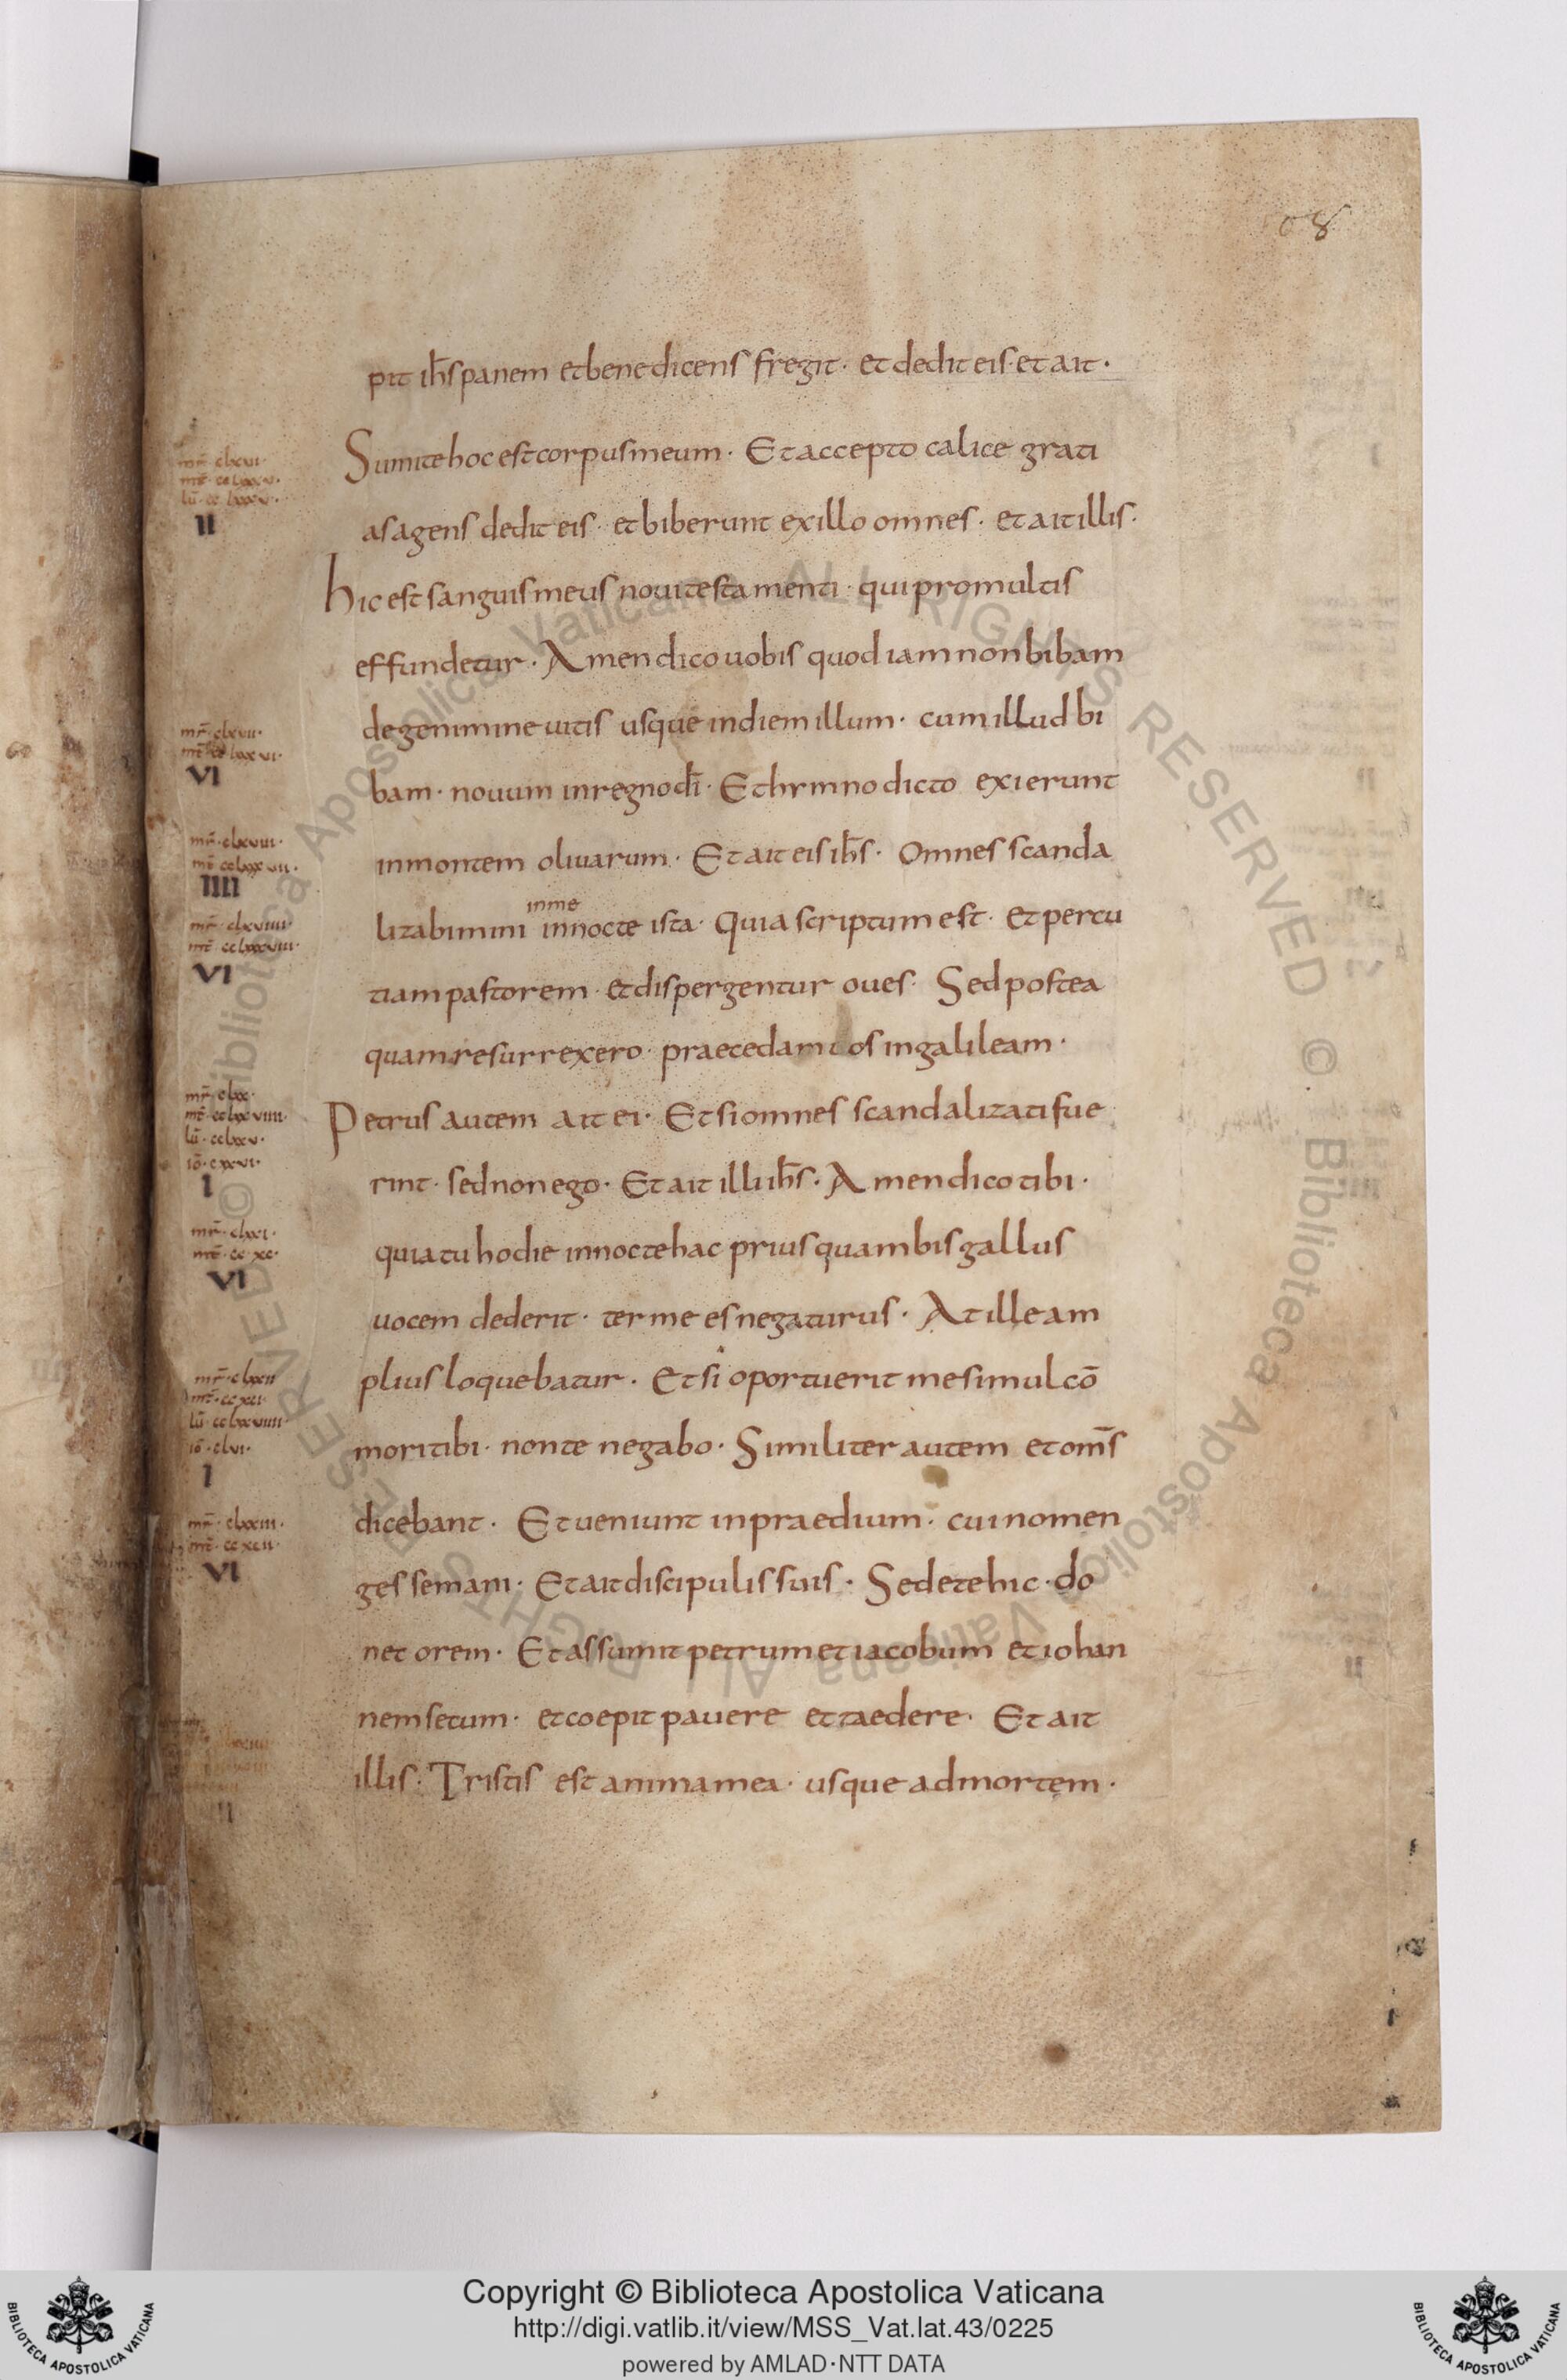 08
pit ih̅s panem et benedicens fregit · et dedit eis · et ait ·
Sumite hoc est corpus meum · Et accepto calice grati
as agens dedit eis · et biberunt ex illo omnes · et ait illis ·
hic est sanguis meus noui testamenti · qui pro multis
effundetur · Amen dico uobis quod iam non bibam
de genimine uitis usque in diem illum · cum illud bi
bam · nouum in regno di̅ · Et hymno dicto exierunt
in montem oliuarum · Et ait eis ih̅s · Omnes scanda
in me
lizabimini in nocte ista · Quia scriptum est · Et percu
tiam pastorem · et dispergentur oues · Sed postea
quam resurrexero · praecedam uos in galileam ·
Petrus autem ait ei · Et si omnes scandalizati fue
rint · sed non ego · Et ait illi ih̅s · Amen dico tibi ·
quia tu hodie in nocte hac prius quam bis gallus
uocem dederit · ter me es negaturus · At ille am
plius loquebatur · Et si oportuerit me simul co̅
mori tibi · non te negabo · Similiter autem et om̅s
dicebant · Et ueniunt in praedium · cui nomen
gessemani · Et ait discipulis suis · Sedete hic · do
nec orem · Et assumit petrum et iacobum et iohan
nem secum · et coepit pauere et taedere · Et ait
illis · Tristis est anima mea · usque ad mortem ·
mr̅ · clxvi ·
lu̅ · cc lxxv ·
II
mr̅ · clxvii ·
VI
mr̅ · clxviii ·
mt̅ · cclxxvii ·
IIII
mr̅ · clxviiii ·
mt̅ · cclxxviii ·
VI
mr̅ · clxx ·
mt̅ · cclxxviiii ·
lu̅ · cclxxv ·
io̅ · cxxvi ·
I
mr̅ · clxxi ·
mt̅ · cc xc ·
VI
mr̅ · clxxii
mt̅ · cc xci ·
lu̅ · cclxxviiii ·
io̅ · clvi ·
I
mr̅ · clxxiii ·
mt̅ · cc xcii ·
VI
II
© Biblioteca Apostolica Vaticana ALL RIGHTS RESERVED © Biblioteca Apostolica Vaticana ALL RIGHTS RESERVED
Copyright © Biblioteca Apostolica Vaticana
http://digi.vatlib.it/view/MSS_Vat.lat.43/0225
powered by AMLAD·NTT DATA
BIBLIOTECA APOSTOLICA VATICANA
BIBLIOTECA APOSTOLICA VATICANA